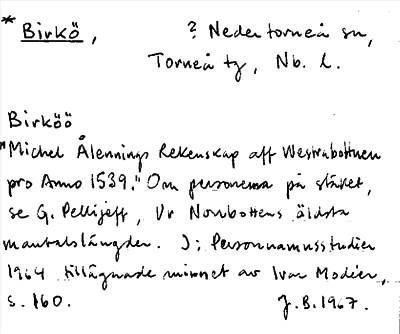 * Birkö, ? Nedertorneå sn,
Torneå tg, Nb. l.
Birköö
"Michel Ålennings Rekenskap aff Westrabottnen
pro Anno 1539." Om personerna på stäket,
se G. Pellijeff, Ur Norrbottens äldsta
mantalslängder. I: Personnamnsstudier
1964 tillägnade minnet av Ivar Modéer,
s. 160. J.B. 1967.